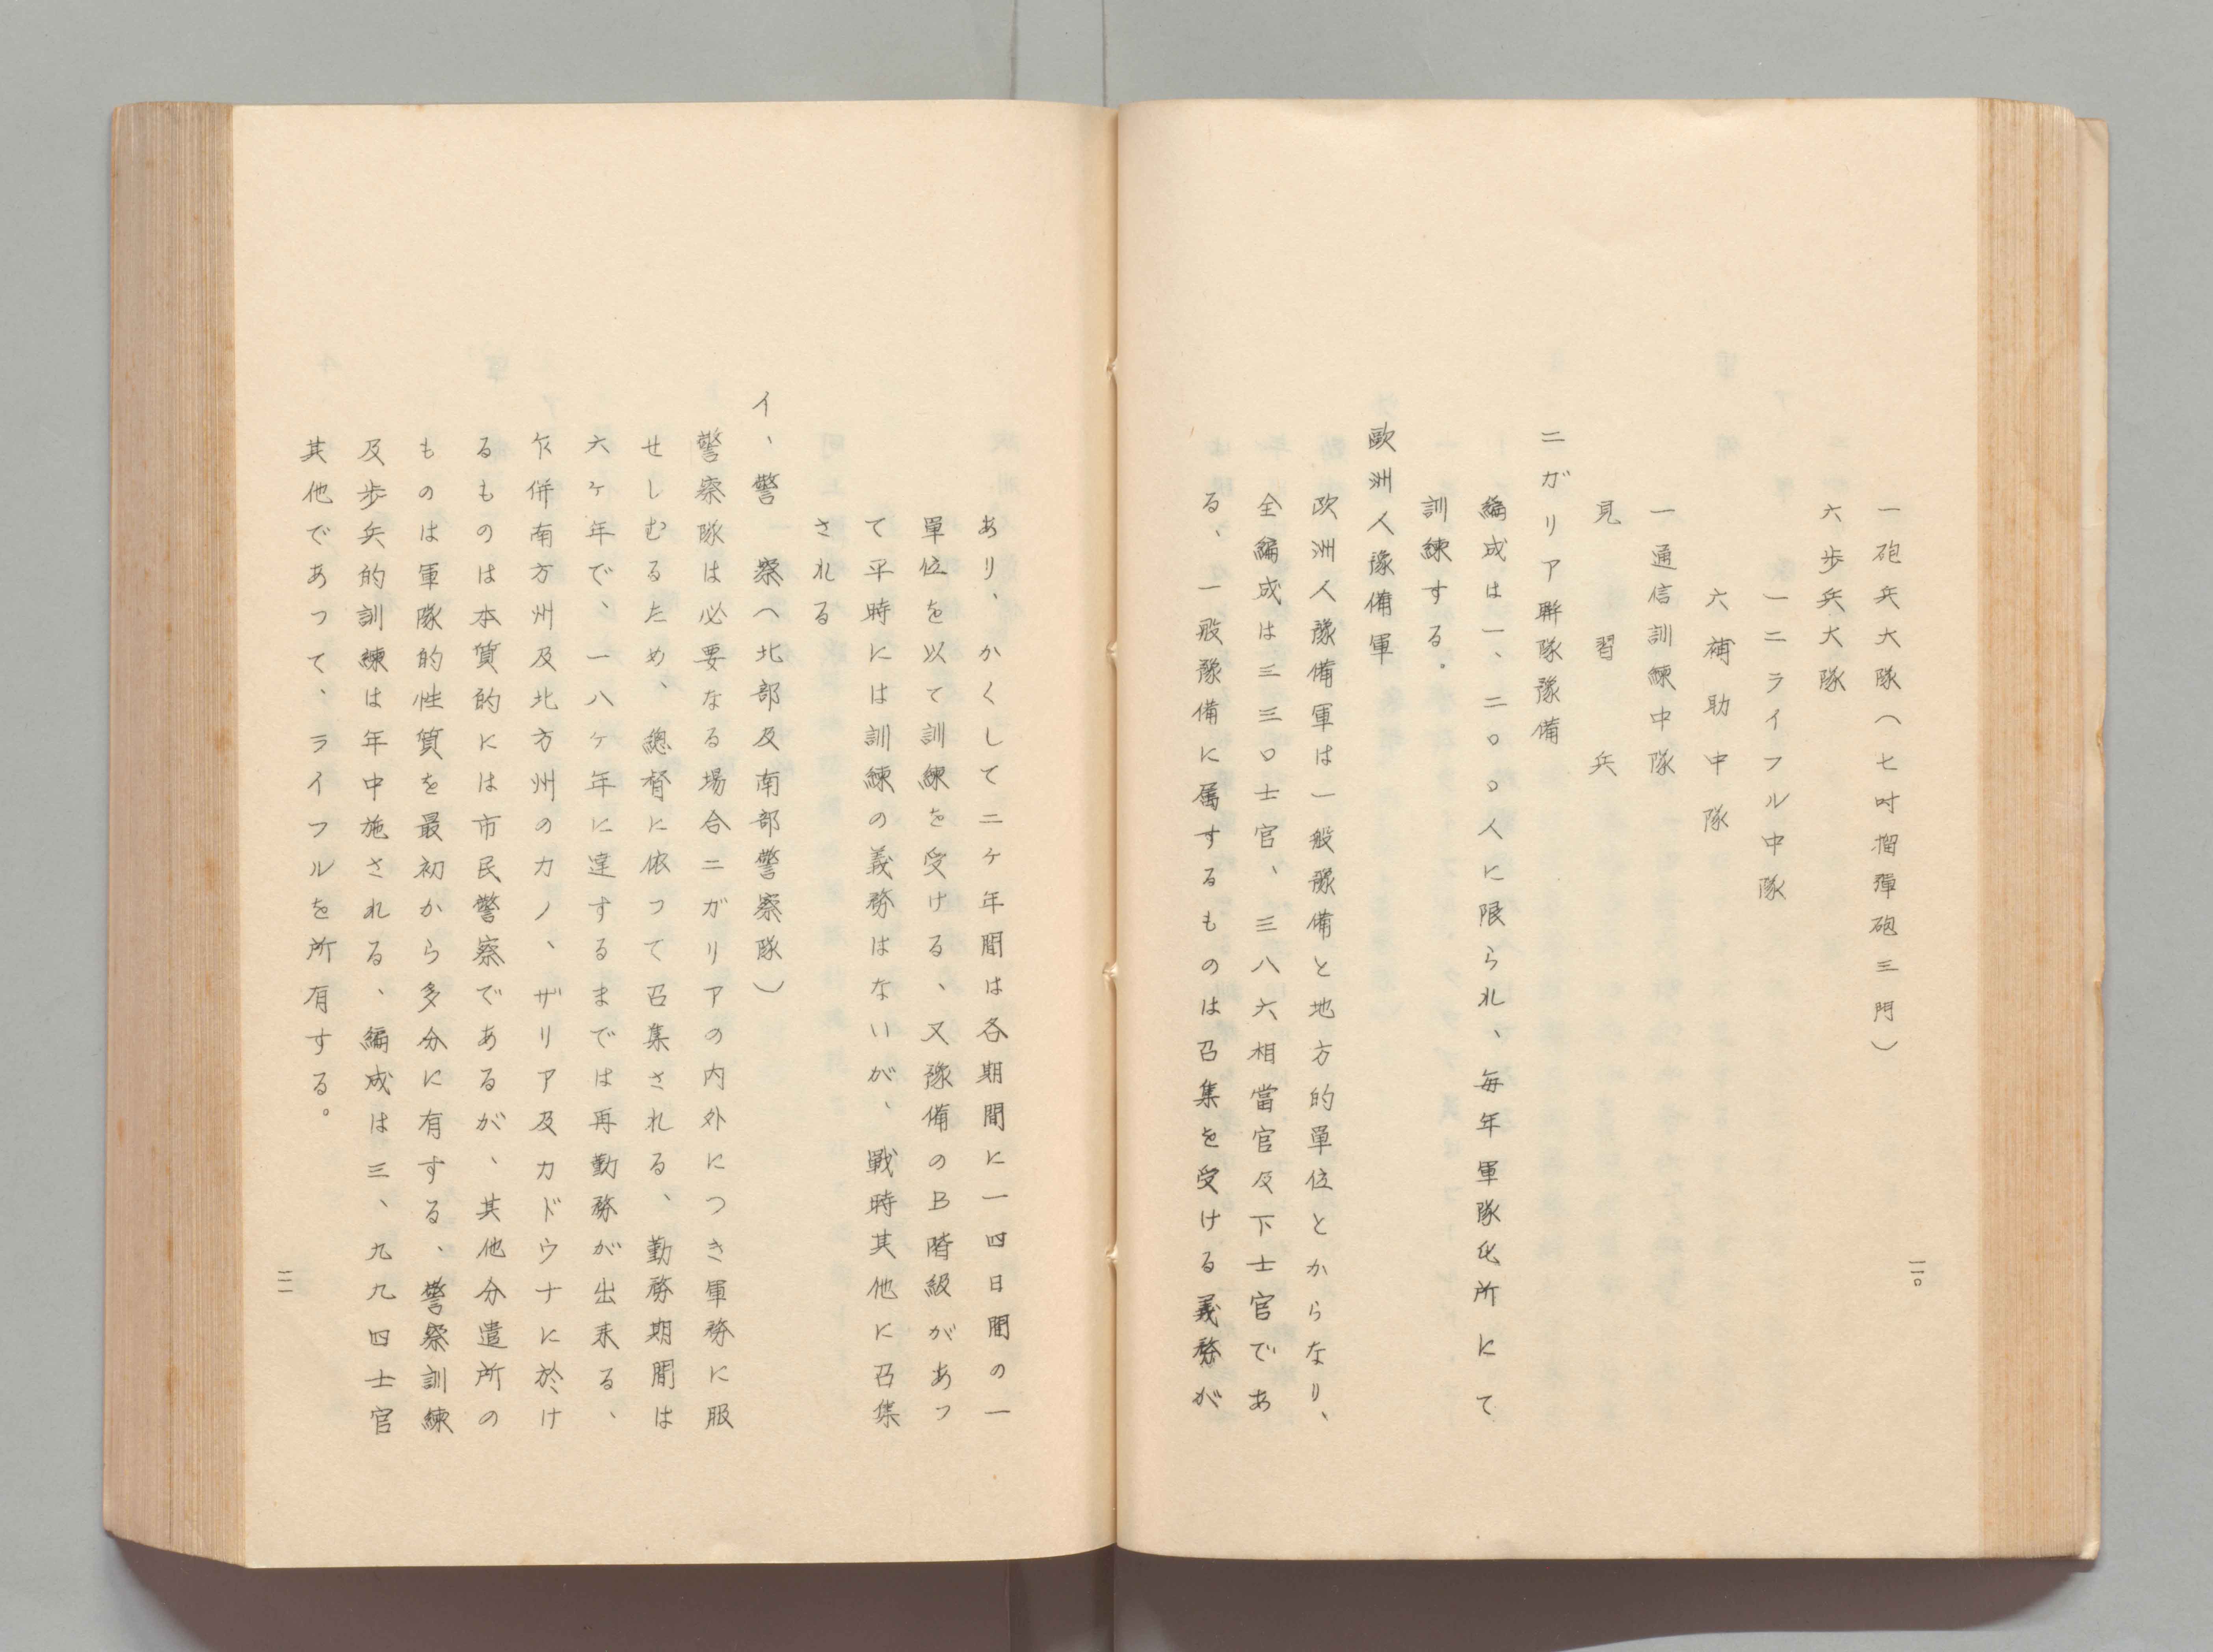 一砲兵大隊(七吋榴彈砲三門)
六歩兵大隊
一ニライフル中隊
六補助中隊
一通信訓練中隊
見習兵
ニガリア聯隊豫備
編成は一、二〇〇人に限られ、毎年軍隊化所にて
訓練する。
歐洲人豫備軍
欧洲人豫備軍は一般豫備と地方的單位とからなり、
全編成は三三〇士官、三八六相當官及下士官であ
る、一般豫備に属するものは召集を受ける義務が
一一〇
あり、かくして二ヶ年間は各期間に一四日間の一
單位を以て訓練を受ける、又豫備のB階級があつ
て平時には訓練の義務はないが、戰時其他に召集
される
イ、警察(北部及南部警察隊)
警察隊は必要なる場合ニガリアの内外につき軍務に服
せしむるため、總督に依つて召集される、勤務期間は
六ヶ年で、一八ヶ年に達するまでは再勤務が出来る、
尓併南方州及北方州のカノ、ザリア及カドウナに於け
るものは本質的には市民警察であるが、其他分遣所の
ものは軍隊的性質を最初から多分に有する、警察訓練
及歩兵的訓練は年中施される、編成は三、九九四士官
其他であつて、ライフルを所有する。
一一一